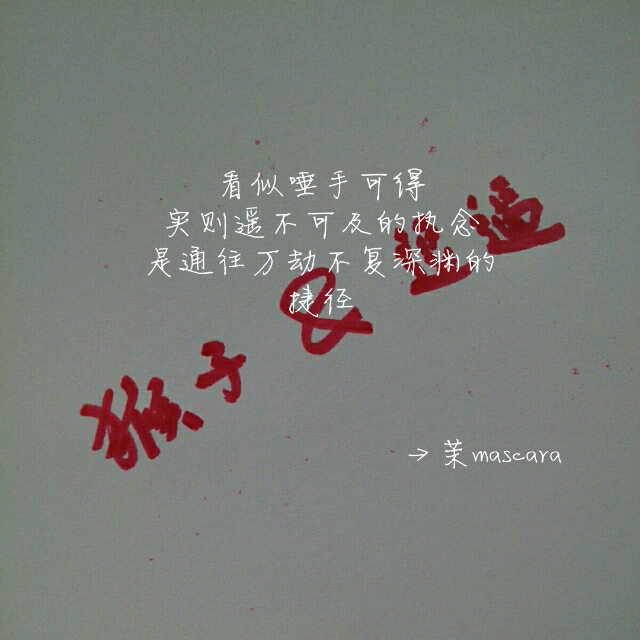 看似唾手可得
实则遥不可及的执念
是通往万劫不复深渊的
捷径
子 &
→ 茉mascara